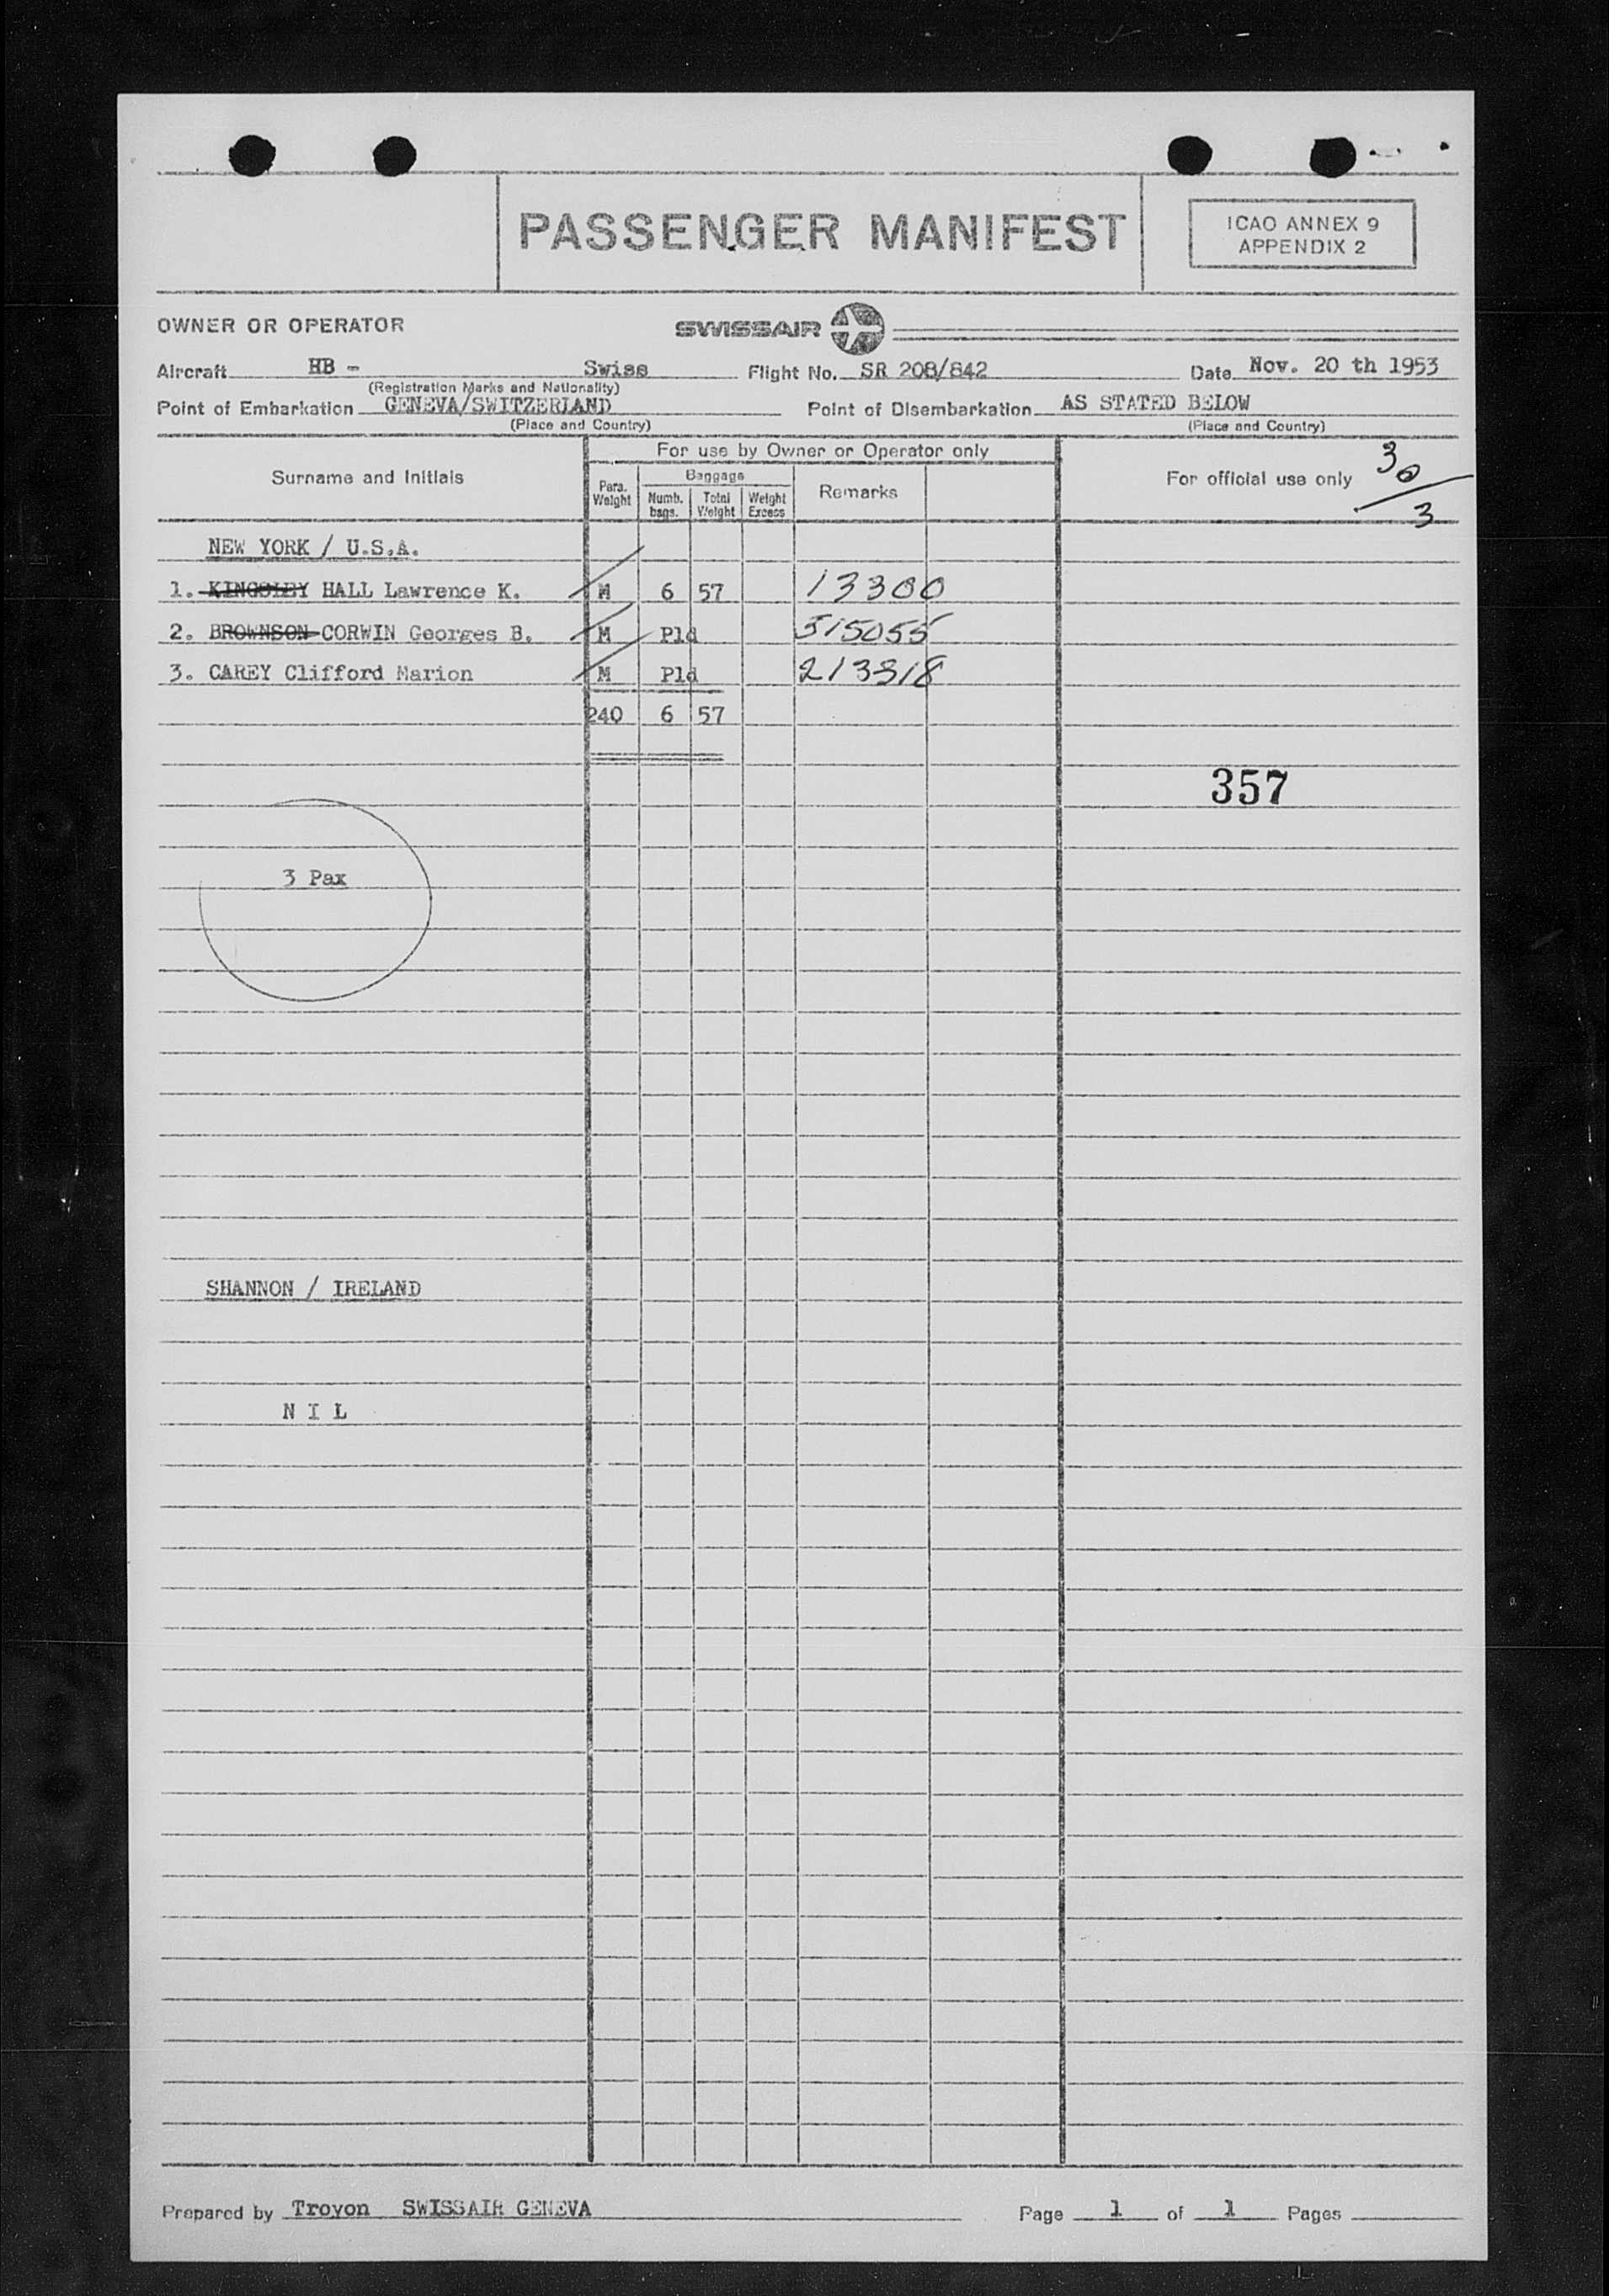 PASSENGER MANIFEST
ICAO ANNEX 9
APPENDIX 2
OWNER OR OPERATOR
SWISSAIR
Aircraft HB - Swiss Flight No. SR 208/842 Date Nov. 20 th 1953
(Registration Marks and Nationality)
Point of Embarkation GENEVA/SWITZERLAND Point of Disembarkation AS STATED BELOW
(Place and Country) (Place and Country)
Surname and Initials
For use by Owner or Operator only
Pers. Weight
Baggage
Numb. bags. Total Weight Weight Excess
Remarks
For official use only
30
3
NEW YORK / U.S.A.
1. KINGSLEY HALL Lawrence K. M 6 57 13300
2. BROWNSON CORWIN Georges B. M Pld 515055
3. CAREY Clifford Marion M Pld 213318
240 6 57
357
3 Pax
SHANNON / IRELAND
N I L
Prepared by Troyon SWISSAIR GENEVA Page 1 of 1 Pages